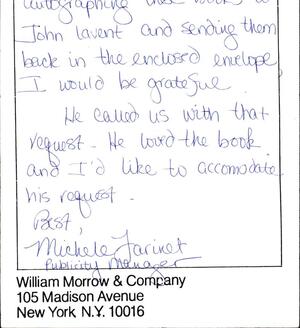 autographing these books to
John Lavent and sending them
back in the enclosed envelope
I would be grateful.
He called us with that
request. He loved the book
and I'd like to accomodate
his request.
Best,
Michele Farinet
Publicity Manager
William Morrow & Company
105 Madison Avenue
New York N.Y. 10016